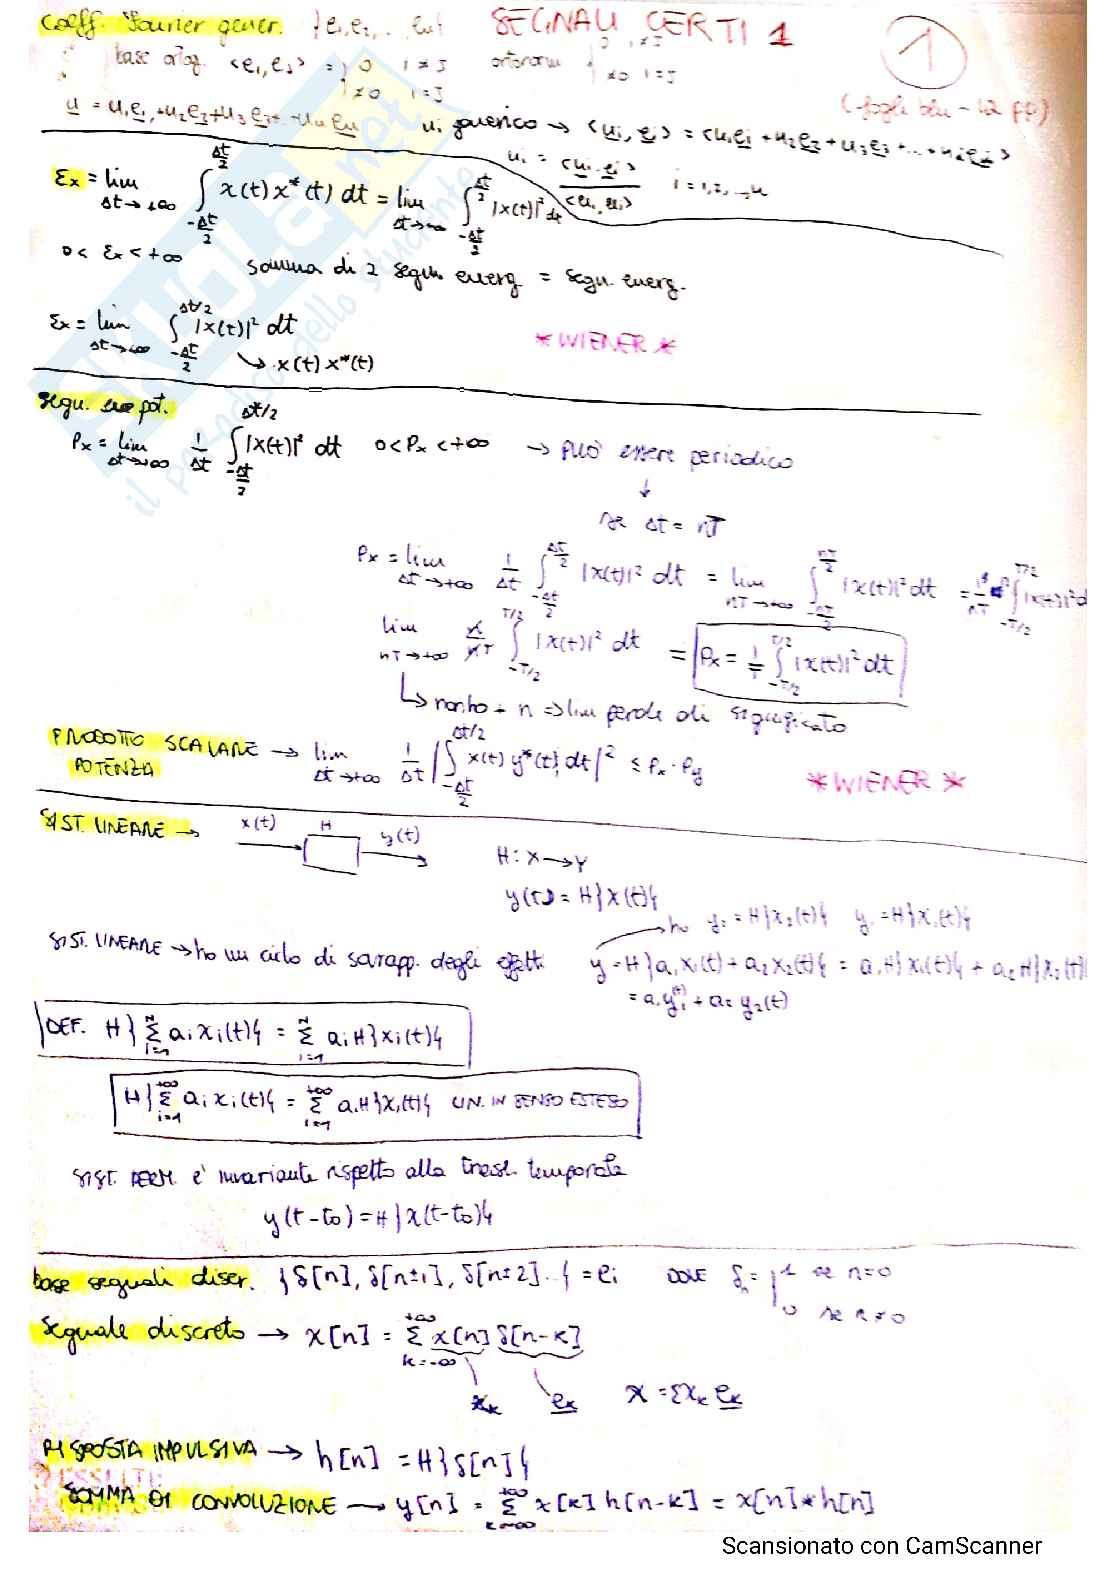 Coeff. Fourier gener. {e₁,e₂,... en} SEGNALI CERTI 1 ①
base ortog. <ei,ej> = { 0 i≠j ortonorm { 0 i≠j
≠0 i=j ≠0 i=j
(fogli blu - 42 pp)
u = u₁e₁+u₂e₂+u₃e₃+...+un en ui generico → <ui, ei> = <u₁e₁+u₂e₂+u₃e₃+...+>
ui = <ui, ei> / <ei, ei> i=1,2,...,n
Ex = lim Δt→+∞ ∫_{-Δt/2}^{Δt/2} x(t) x*(t) dt = lim Δt→+∞ ∫_{-Δt/2}^{Δt/2} |x(t)|² dt
0 < Ex < +∞ somma di 2 segn. energ = segn. energ.
Ex = lim Δt→+∞ ∫_{-Δt/2}^{Δt/2} |x(t)|² dt
↳ x(t) x*(t)
*WIENER*
Segn. pot.
Px = lim Δt→+∞ 1/Δt ∫_{-Δt/2}^{Δt/2} |x(t)|² dt 0<Px<+∞ → può essere periodico
↓
se Δt = nT
Px = lim Δt→+∞ 1/Δt ∫_{-Δt/2}^{Δt/2} |x(t)|² dt = lim nT→+∞ ∫_{-nT/2}^{nT/2} |x(t)|² dt = 1/nT ∫_{-T/2}^{T/2} |x(t)|² d
lim nT→+∞ n/nT ∫_{-T/2}^{T/2} |x(t)|² dt = Px = 1/T ∫_{-T/2}^{T/2} |x(t)|² dt
↳ non ho + n ⇒ lim perde di significato
PRODOTTO SCALARE → lim Δt→+∞ 1/Δt |∫_{-Δt/2}^{Δt/2} x(t) y*(t) dt|² ≤ Px · Py
POTENZA
*WIENER*
SIST. LINEARE → x(t) H y(t)
H: X → Y
y(t) = H{x(t)}
ho y₂ = H{x₂(t)} y₁ = H{x₁(t)}
SIST. LINEARE → ho un di sovrapp. degli effetti y = H{a₁x₁(t) + a₂x₂(t)} = a₁H{x₁(t)} + a₂H{x₂(t)
= a₁y₁(t) + a₂y₂(t)
DEF. H{ Σ_{i=1}^{N} ai xi(t)} = Σ_{i=1}^{N} ai H{xi(t)}
H{ Σ_{i=1}^{+∞} ai xi(t)} = Σ_{i=1}^{+∞} ai H{xi(t)} LIN. IN SENSO ESTESO
SIST. PERM. è invariante rispetto alla trasl. temporale
y(t-t₀) = H{x(t-t₀)}
base segnali discr. {δ[n], δ[n±1], δ[n±2]...} = ei DOVE δn = { 1 se n=0
0 se n≠0
Segnale discreto → x[n] = Σ_{k=-∞}^{+∞} x[n] δ[n-k]
xk ek x = Σxk ek
RISPOSTA IMPULSIVA → h[n] = H{δ[n]}
SOMMA DI CONVOLUZIONE → y[n] = Σ_{k=-∞}^{+∞} x[k] h[n-k] = x[n]*h[n]
SKUOLA.net
il paradiso dello studente
Scansionato con CamScanner